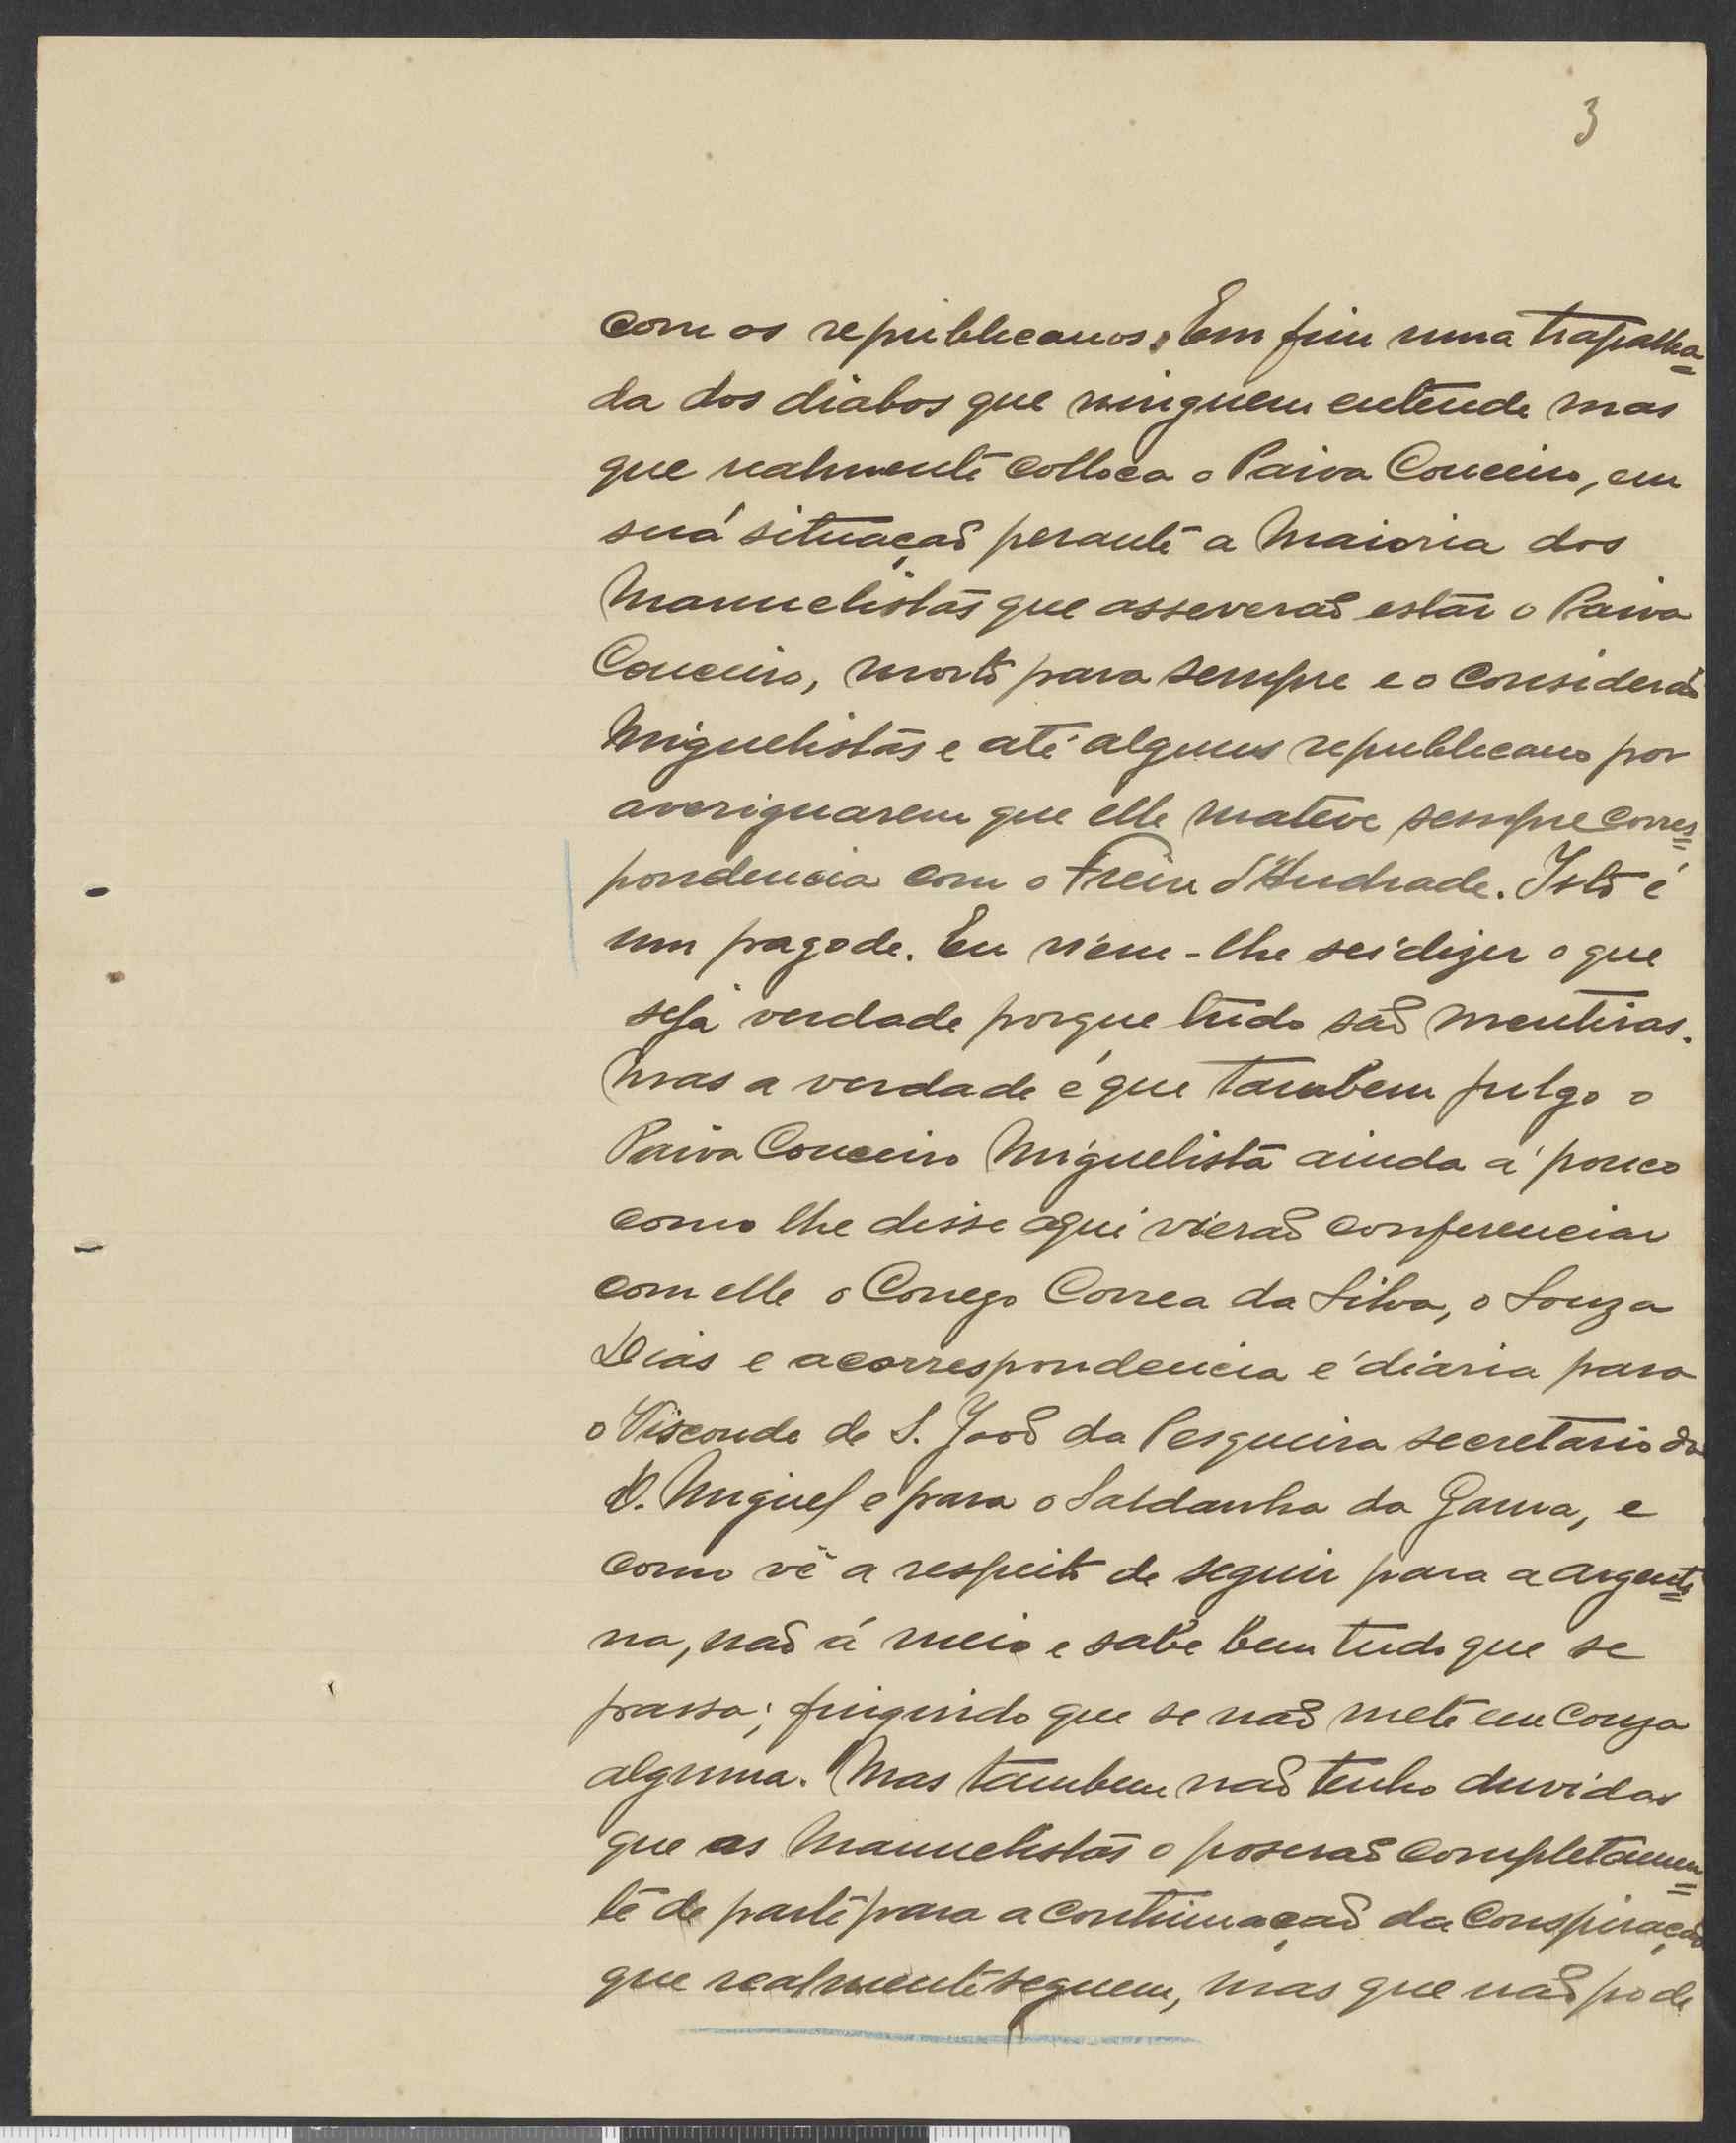 3
com os republicanos. Em fim uma trapalha=
da dos diabos que ninguem entende mas
que realmente colloca o Paiva Couceiro, em
suá situaçaõ perante a Maioria dos
Manuelistas que asseveraõ estár o Paiva
Couceiro, morto para sempre e o consideraõ
Miguelistas e até alguns republicano por
averiguarem que elle mateve sempre corres=
pondencia com o Freire d'Andrade. Isto é
um pagode. Eu nem-lhe sei dizer o que
seja verdade porque tudo saõ mentiras.
Mas a verdade é que tambem julgo o
Paiva Couceiro Miguelista ainda á pouco
como lhe disse aqui vieraõ conferenciar
com elle o Conego Correa da Silva, o Souza
Dias e a correspondencia é diária para
o Visconde de S. Joaõ da Pesqueira secretario do
D. Miguel e para o Saldanha da Gama, e
como vê a respeito de seguir para a argenti=
na, naõ á meio e sabe bem tudo que se
passa; fingindo que se naõ mete em couza
alguma. Mas tambem naõ tenho duvidas
que os Manuelistas o poseraõ completamen=
te de parte para a continuaçaõ da Conspiraçaõ
que realmente seguem, mas que naõ pode